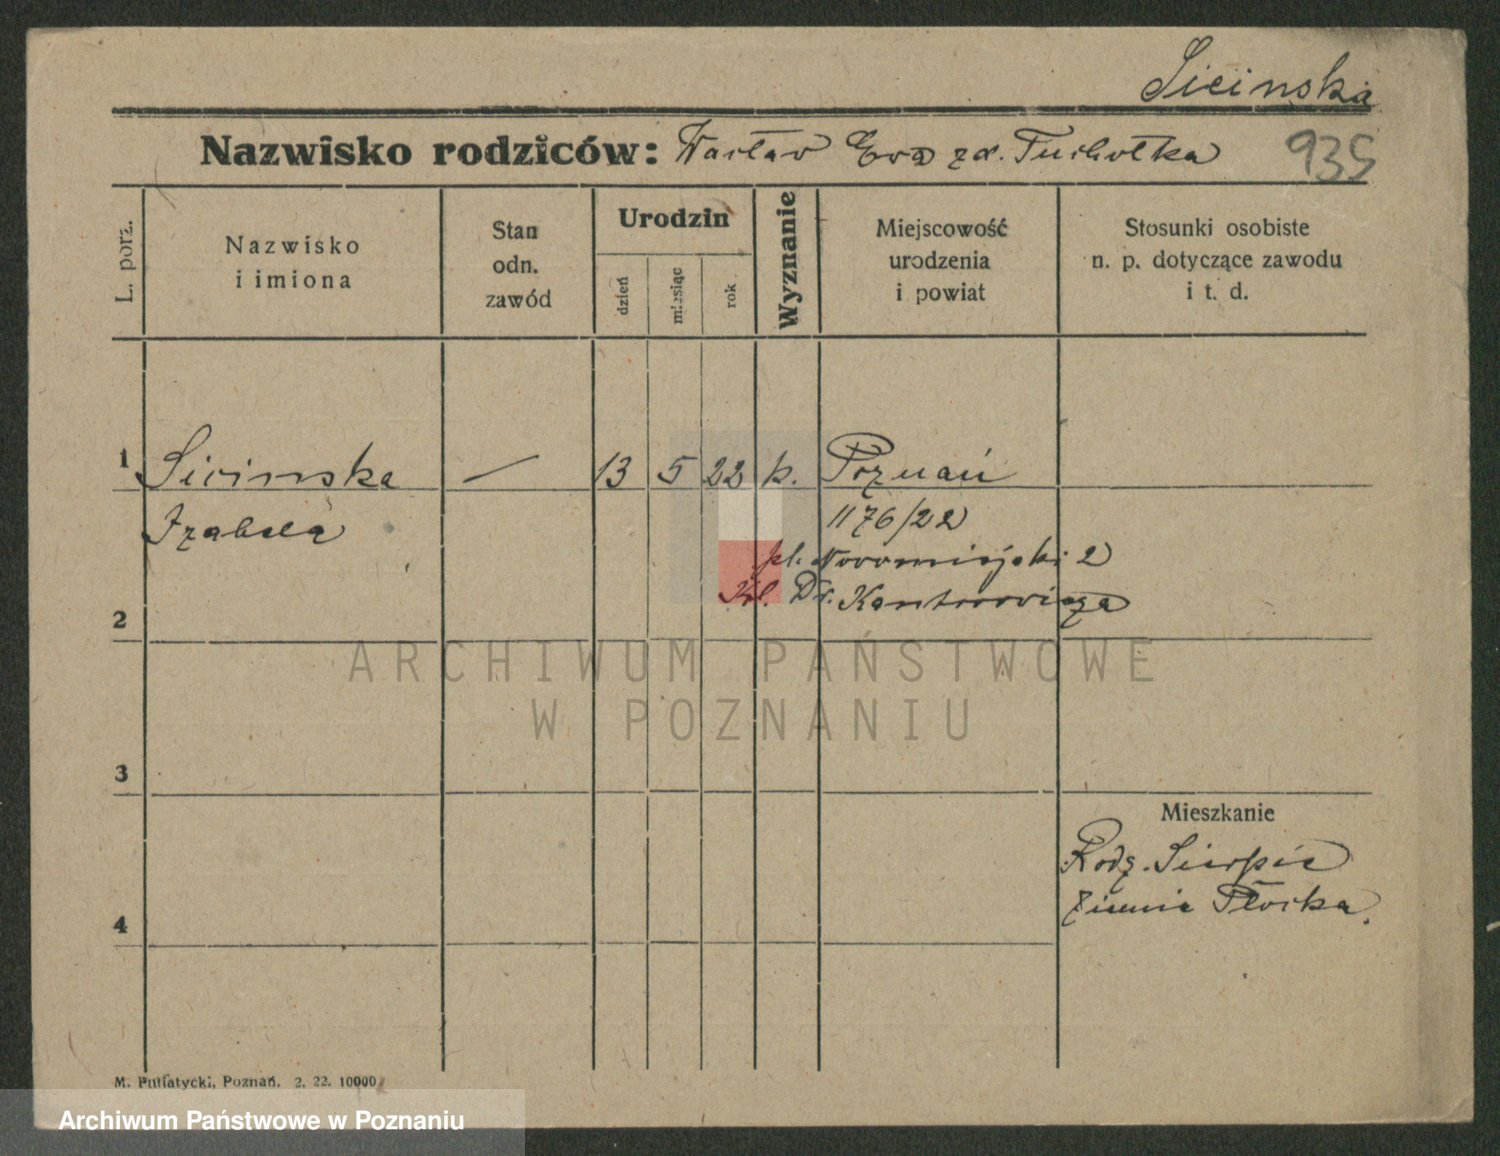 Sicinska
Nazwisko rodziców: Wacław Ewa zd. Tuchołka
935
L. porz.
Nazwisko
i imiona
Stan
odn.
zawód
Urodzin
dzień
miesiąc
rok
Wyznanie
Miejscowość
urodzenia
i powiat
Stosunki osobiste
n. p. dotyczące zawodu
i t. d.
1 Sicinska — 13 5 22 k. Poznań
Izabela 1176/22
pl. Nowomiejski 2
Kl. Dr. Kantorowicza
2
ARCHIWUM PAŃSTWOWE
W POZNANIU
3
Mieszkanie
Rodz. Sierpie
ziemia Płocka.
4
M. Putiatycki, Poznań. 2. 22. 10000
Archiwum Państwowe w Poznaniu